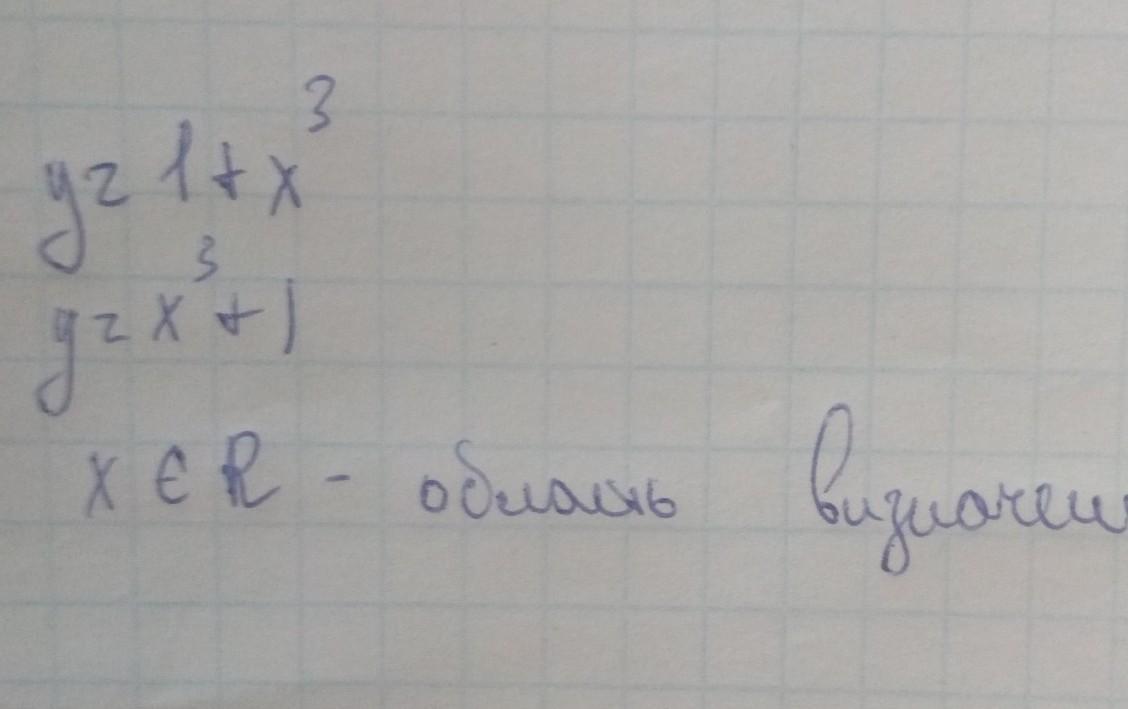 y = 1 + x³
y = x³ + 1
x ∈ R - область визначен